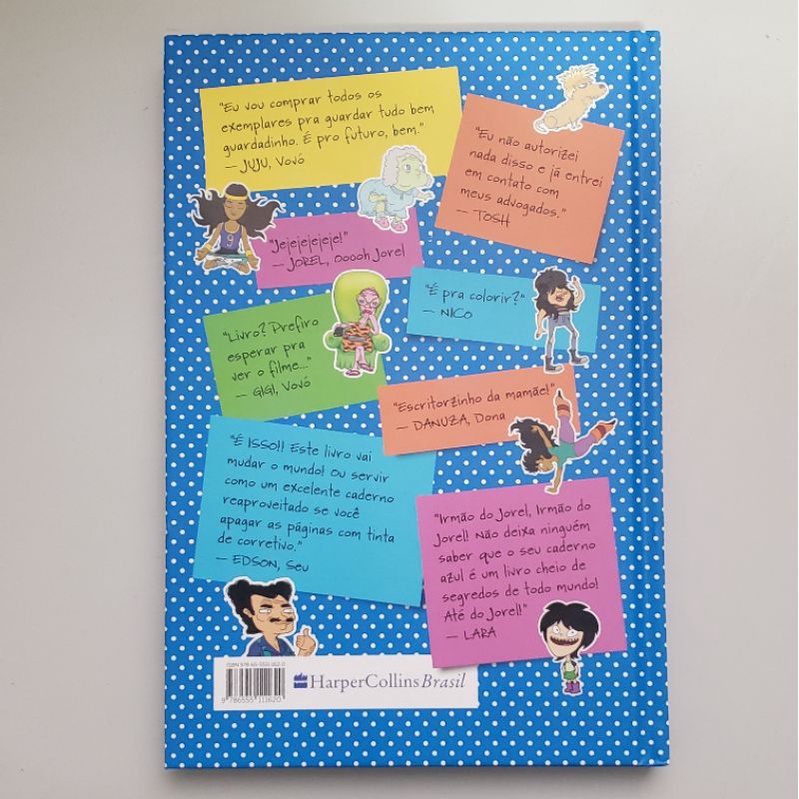 "Eu vou comprar todos os
exemplares pra guardar tudo bem
guardadinho. É pro futuro, bem."
— JUJU, Vovó
"Eu não autorizei
nada disso e já entrei
em contato com
meus advogados."
— TOSH
"Jejejejejeje!"
— JOREL, Ooooh Jorel
9
"É pra colorir?"
— NICO
"Livro? Prefiro
esperar pra
ver o filme..."
— GIGI, Vovó
"Escritorzinho da mamãe!"
— DANUZA, Dona
"É ISSO!! Este livro vai
mudar o mundo! Ou servir
como um excelente caderno
reaproveitado se você
apagar as páginas com tinta
de corretivo."
— EDSON, Seu
"Irmão do Jorel, Irmão do
Jorel! Não deixa ninguém
saber que o seu caderno
azul é um livro cheio de
segredos de todo mundo!
Até do Jorel!"
— LARA
ISBN 978-65-5511-162-0
9 786555 111620
HarperCollins Brasil